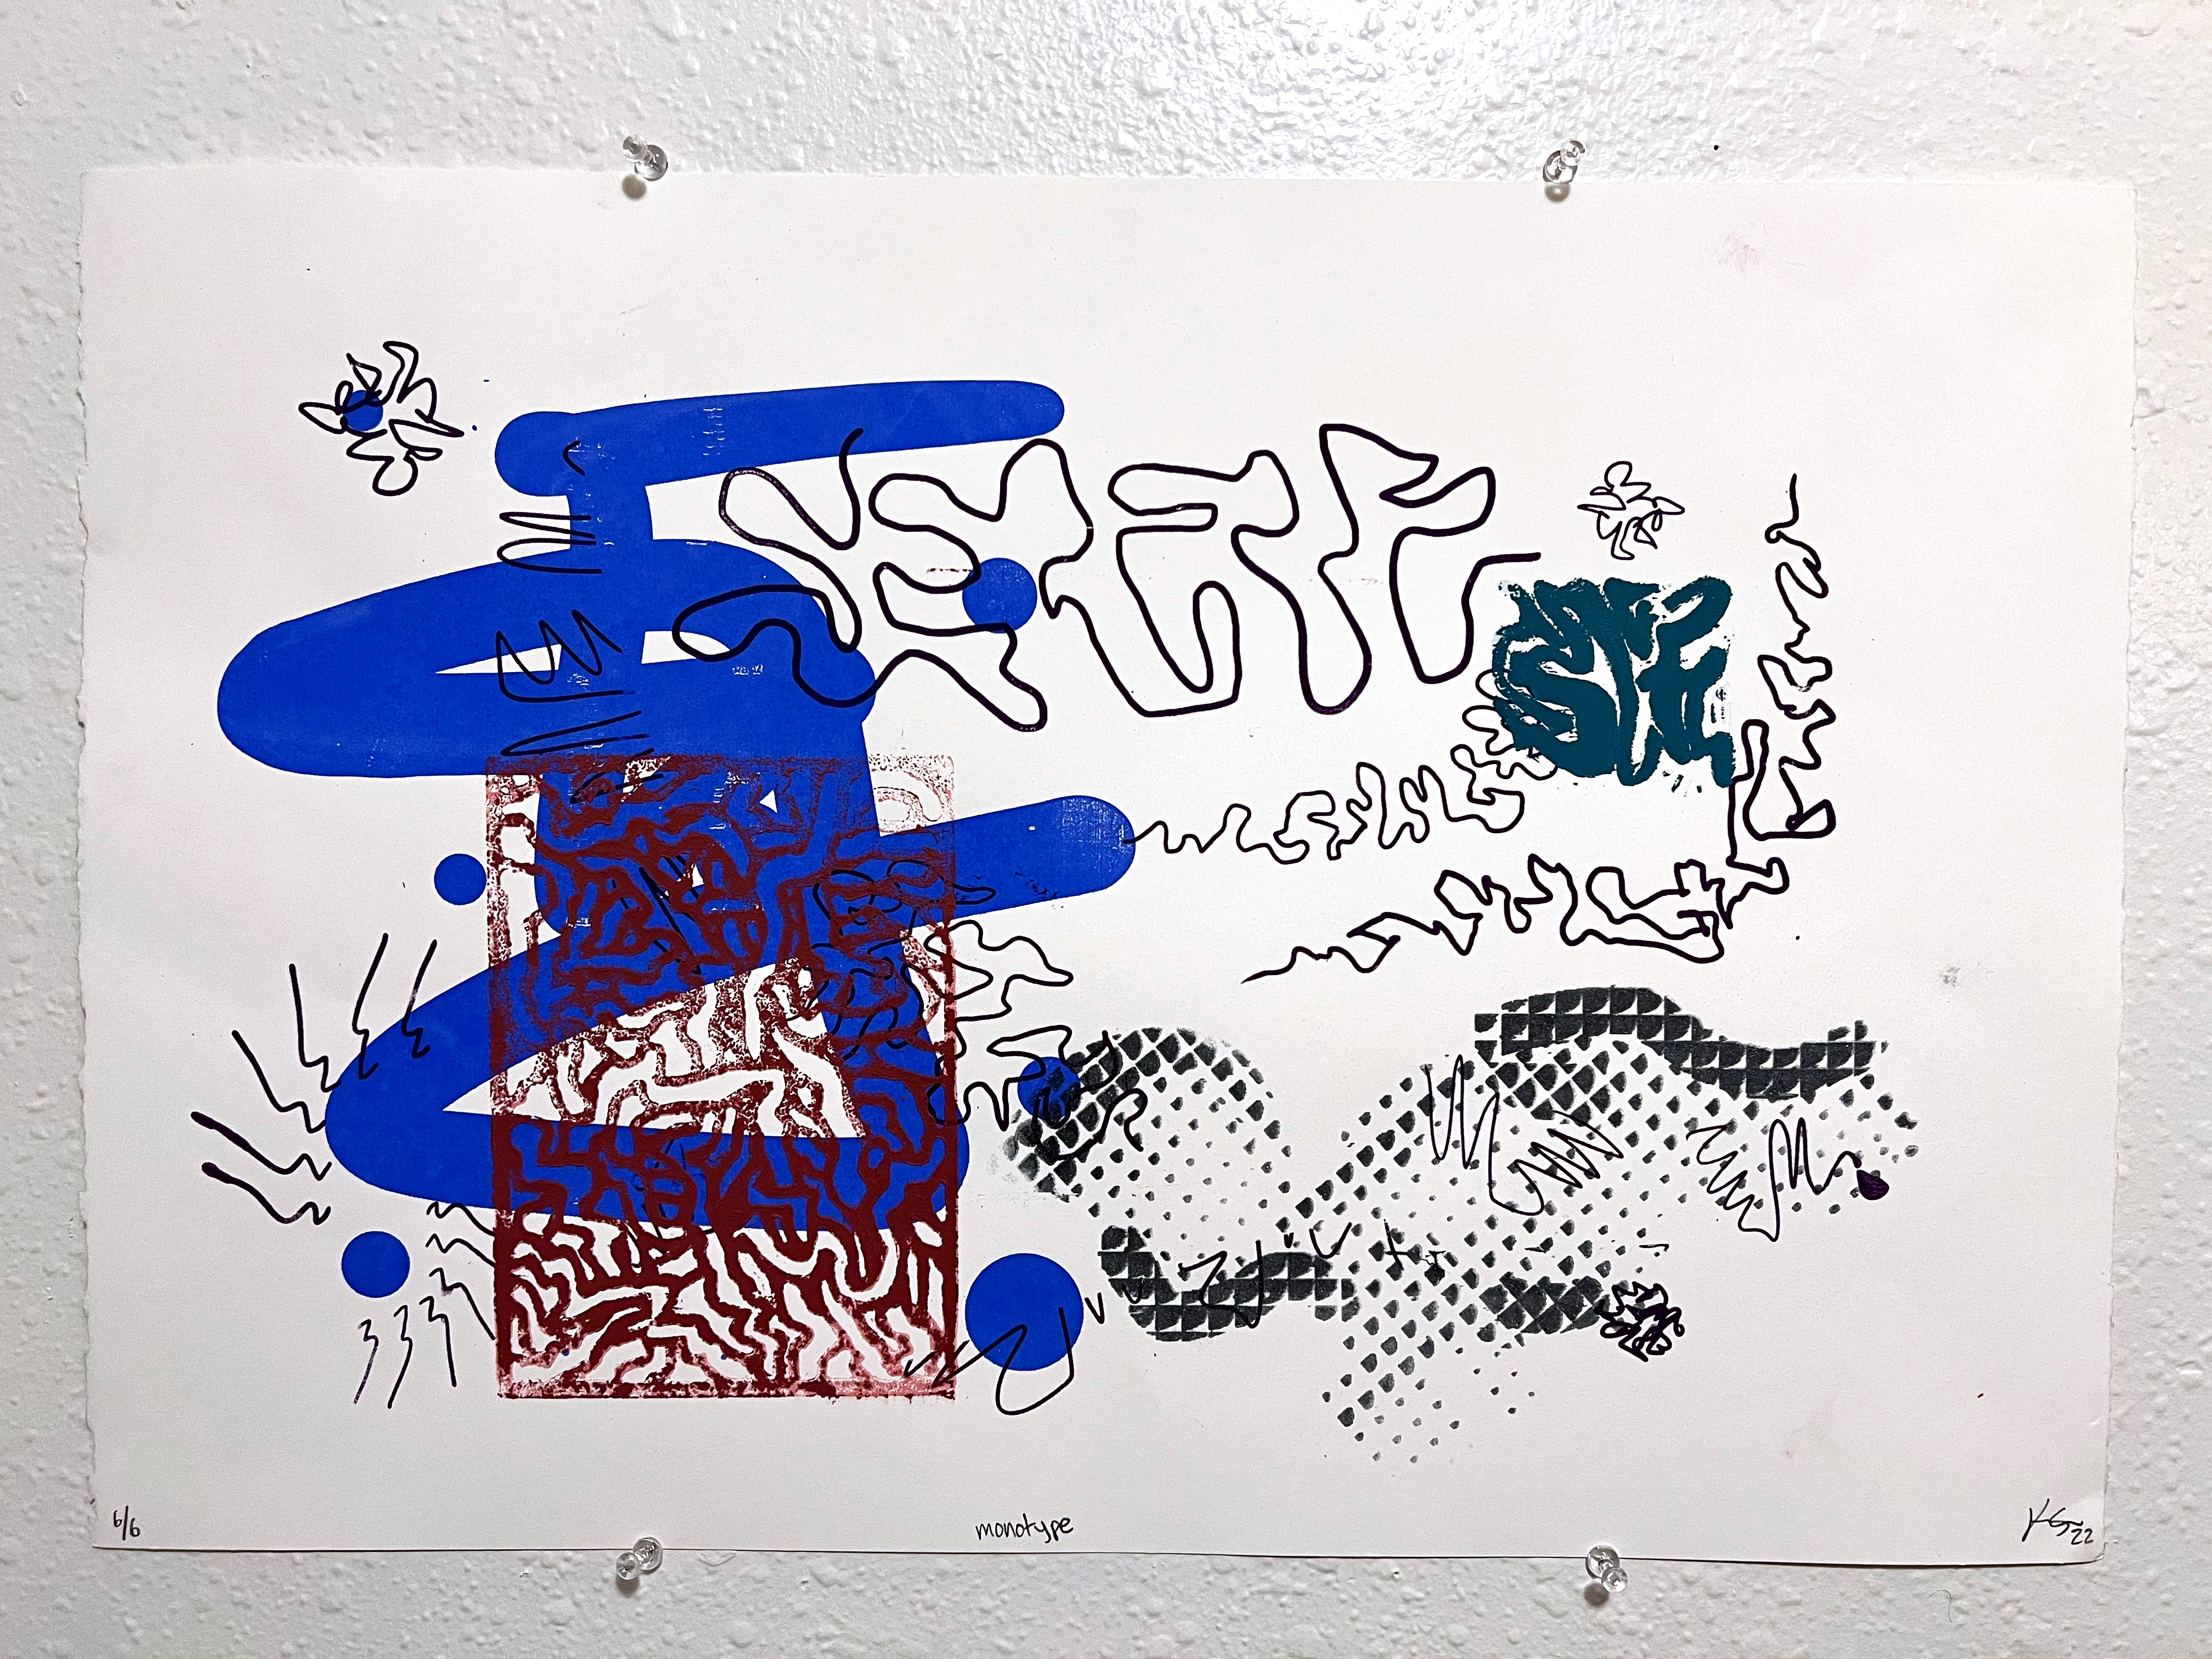 6/6
monotype
KG 22